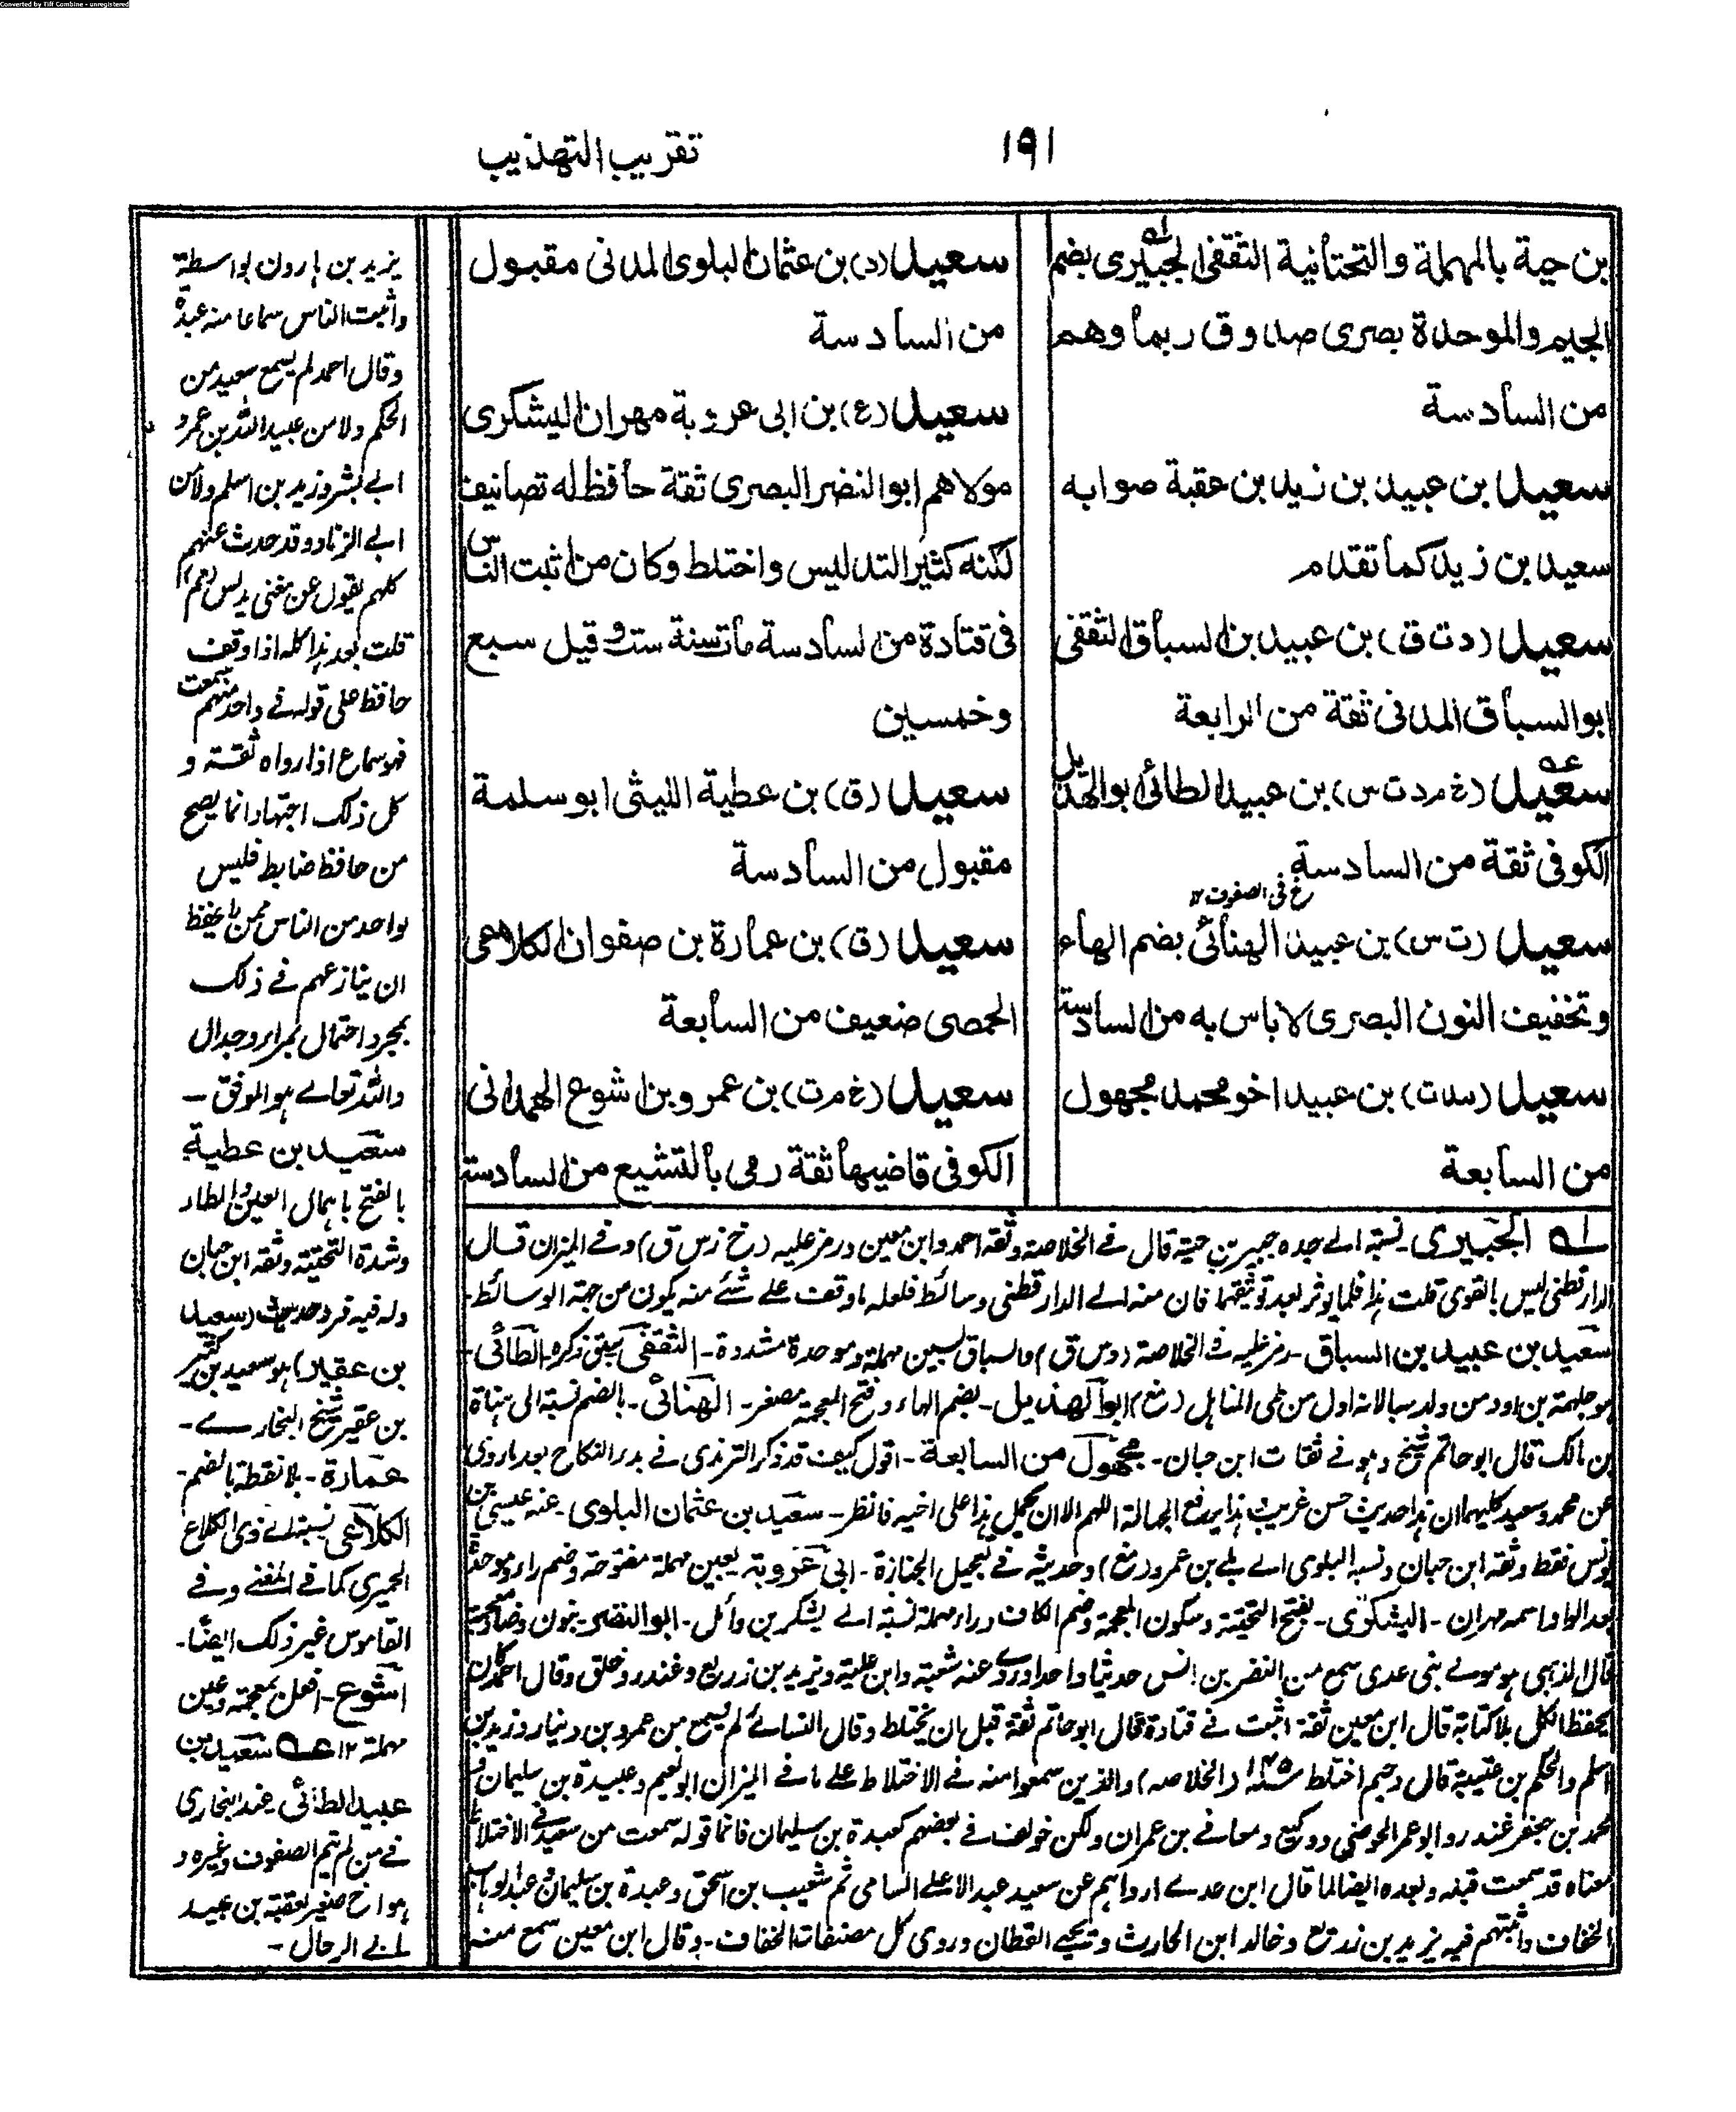 Converted by Tiff Combine - unregistered
١٩١
تقريب التهذيب
بن حية بالمهملة والتحتانية الثقفى الجبيرى بضم
الجيم والموحدة بصرى صدوق ربما وهم
من السادسة
سعيد بن عبيد بن زيد بن عقبة صوابه
سعيد بن زيد كما تقدم
سعيد (د ت ق) بن عبيد بن السباق الثقفى
ابو السباق المدنى ثقة من الرابعة
سعيد (خ م د ت س) بن عبيد الطائى ابو الهذيل
الكوفى ثقة من السادسة
خ فى الصفوف ١٢
سعيد (ت س) بن عبيد الهنائى بضم الهاء
وتخفيف النون البصرى لا باس به من السادسة
سعيد (سدت) بن عبيد اخو محمد مجهول
من السابعة
سعيد (د) بن عثمان البلوى المدنى مقبول
من السادسة
سعيد (ع) بن ابى عروبة مهران اليشكرى
مولاهم ابو النضر البصرى ثقة حافظ له تصانيف
لكنه كثير التدليس واختلط وكان من اثبت الناس
فى قتادة من السادسة مات سنة ست وقيل سبع
وخمسين
سعيد (ق) بن عطية الليثى ابو سلمة
مقبول من السادسة
سعيد (ق) بن عمارة بن صفوان الكلاعى
الحمصى ضعيف من السابعة
سعيد (خ م ت) بن عمرو بن اشوع الهمدانى
الكوفى قاضيها ثقة رمى بالتشيع من السادسة
له الجبيرى نسبة الى جده جبير بن حية قال فى الخلاصة وثقه احمد وابن معين ورمز عليه (خ ز س ق) وفى الميزان قال
الدارقطنى ليس بالقوى قلت هذا فلما يوثر بعد توثيقهما فان منه الى الدارقطنى وسائط فلعله ما وقف على شئ منه يكون من جهة الوسائط-
سعيد بن عبيد بن السباق- رمز عليه فى الخلاصة (دس ق) والسباق بسين مهملة وموحدة مشددة- الثقفى سبق ذكره- الطائى-
هو جلهمة بن اود من ولد سبا لانه اول من طى المناهل (مغ) ابو الهذيل- بضم الهاء وفتح المعجمة مصغر- الهنائى- بالضم نسبة الى هناة
بن مالك قال ابو حاتم شيخ وهو فى ثقات ابن حبان- مجهول من السابعة- اقول كيف قد ذكر الترمذى فى بدر النكاح بعد ما روى
عن محمد وسعيد كليهما ان هذا حديث حسن غريب هذا يرفع الجهالة اللهم الا ان يحمل هذا على اخيه فانظر- سعيد بن عثمان البلوى- عنه عيسى بن
يونس فقط وثقه ابن حبان ونسبة البلوى الى بلى بن عمرو (مغ) وحديثه فى تعجيل الجنازة- ابى عروبة بعين مهملة مفتوحة وضم راء وموحدة
بعد الواو اسمه مهران- اليشكرى- بفتح التحتية وسكون المعجمة وضم الكاف وراء مهملة نسبة الى يشكر بن وائل- ابو النضر- بنون وضاد معجمة
قال الذهبى هو مولى بنى عدى سمع من النضر بن انس حديثا واحدا وروى عنه شعبة وابن علية ويزيد بن زريع وغندر وخلق وقال احمد كان
يحفظ الكل بلا كتابة قال ابن معين ثقة اثبت فى قتادة قال ابو حاتم ثقة قبل ان يختلط وقال النسائى لم يسمع من عمرو بن دينار وزيد بن
اسلم والحكم بن عتيبة قال دحيم اختلط سنة ١٤٥ (الخلاصه) والذين سمعوا منه فى الاختلاط على ما فى الميزان ابو نعيم وعبيدة بن سليمان و
محمد بن جعفر غندر وابو عمر الحوضى ووكيع ومعافى بن عمران ولكن خولف فى بعضهم كعبدة بن سليمان فانما قوله سمعت من سعيد فى الاختلاط
معناه قد سمعت قبله وبعده ايضا لما قال ابن عدى ارواهم عن سعيد عبد الاعلى السامى ثم شعيب بن اسحق وعبدة بن سليمان وعبد الوهاب
الخفاف واثبتهم فيه يزيد بن زريع وخالد ابن الحارث ويحيى القطان وروى كل مصنفاته الخفاف- وقال ابن معين سمع منه
يزيد بن هارون بواسطة
واثبت الناس سماعا منه عبدة
وقال احمد لم يسمع سعيد من
الحكم ولا من عبيد الله بن عمر و
ابى بشر وزيد بن اسلم ولا من
ابى الزناد وقد حدث عنهم
كلهم يقول عن مغنى يدلس
قلت بعد هذا كله اذا وقف
حافظ على قوله فى واحد منهم سمعت
فهو سماع اذا رواه ثقة و
كل ذلك اجتهاد انما يصح
من حافظ ضابط فليس
بواحد من الناس ممن لا يحفظ
ان ينازعهم فى ذلك
بمجرد احتمال بمراء وجدال
والله تعالى هو الموفق -
سعيد بن عطية
بالفتح باهمال العين والطاء
وشدة التحتية وثقه ابن حبان
وله فيه فرد حديث (سعيد
بن عقير) هو سعيد بن كثير
بن عقير شيخ البخارى-
عمارة- بلا نقطة بالضم-
الكلاعى نسبة الى ذى الكلاع
الحميرى كما فى المغنى وفى
القاموس غير ذلك ايضا-
اشوع- افعل بمعجمة وعين
مهملة ١٢ عه سعيد بن
عبيد الطائى عند البخارى
فى من لم يتم الصفوف وغيره و
هو اخ صغير لعقبة بن عبيد
ابى الرحال -